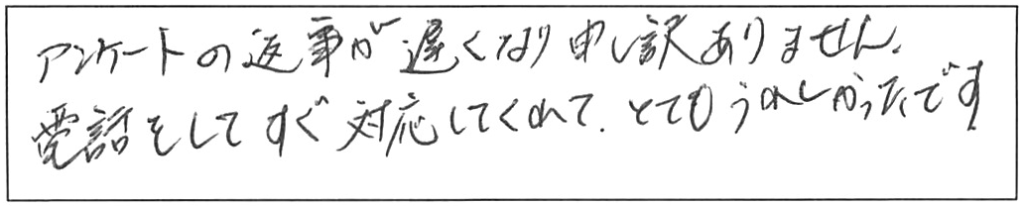 アンケートの返事が遅くなり申し訳ありません.
電話をしてすぐ対応してくれて.とてもうれしかったです